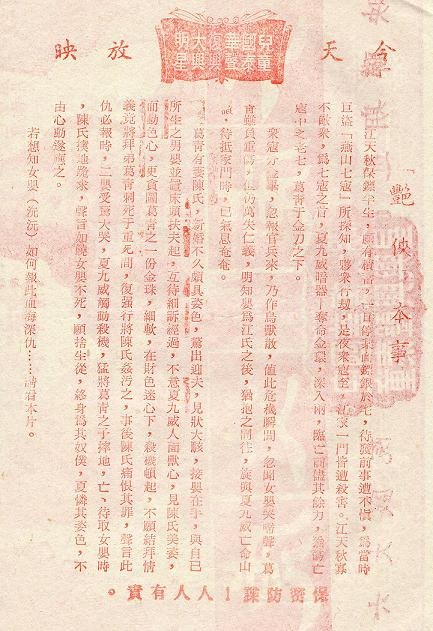 今天放映
兒童 國泰 華聲 復興 大興 明星
艷俠本事
江天秋保鏢半生，頗有積蓄，一日將某商鏢銀於宅，待發前事遭不愼，爲當時
巨盜「燕山七寇」所探知，夥衆行刼，是夜衆寇至，江家一門皆遭殺害。江天秋寡
不敵衆，爲七寇之首，夏九威暗器「奪命金環」深入，臨亡前儘其餘力，
寇中之老七，葛靑于金刀之下。
衆寇分贓畢，忽報官兵來，乃作鳥獸散，值此危機瞬間，忽聞女嬰哭啼聲，葛
靑雖負重傷，但仍萬失仁義，明知嬰爲江氏之後，猶抱之同往，旋與夏九威亡命山
，待抵家門時，已氣息奄奄。
葛靑有妻陳氏，新婚不久頗具姿色，驚出迎夫，見狀大駭，接嬰在手，與自已
所生之男嬰並置床頭扶夫起，互待細訴經過，不意夏九威人面獸心，見陳氏美姿，
而動色心，更貪圖葛靑之一份金珠，細軟，在財色迷心下，殺機頓起，不顧結拜情
義竟將拜弟葛靑刺死于重創間，復強行將陳氏姦汚之，事後陳氏痛恨其罪，聲言此
仇必報時，二嬰受驚大哭，夏九威觸動殺機，猛將葛靑之子摔地，亡，待取女嬰時
，陳氏撲地跪求，聲言如饒女嬰不死，願捨生從，終身爲其奴僕，夏憐其姿色，不
由心動遂應之。
若想知女嬰（沅沅）如何報此血海深仇……請看本片。
保密防諜！人人有責。